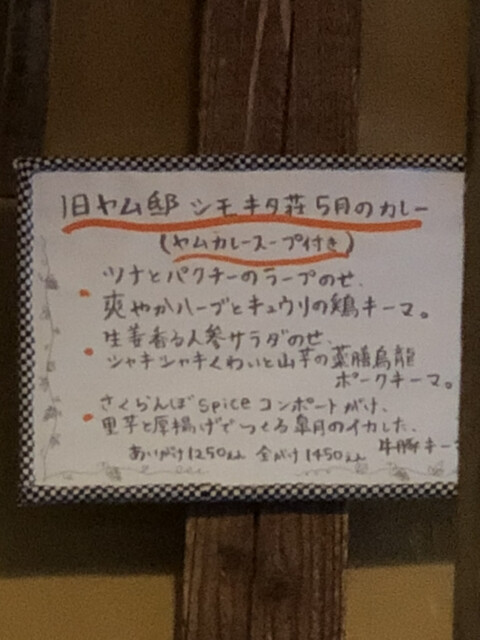 旧ヤム邸 シモキタ荘 5月のカレー
(ヤムカレースープ付き)
・ツナとパクチーのラープのせ、
爽やかハーブとキュウリの鶏キーマ。
・生姜香る人参サラダのせ、
シャキシャキくわいと山芋の薬膳烏龍
ポークキーマ。
・さくらんぼspiceコンポートがけ、
里芋と厚揚げでつくる皐月のイカした、
牛豚キー
あいがけ1250えん 全がけ1450えん